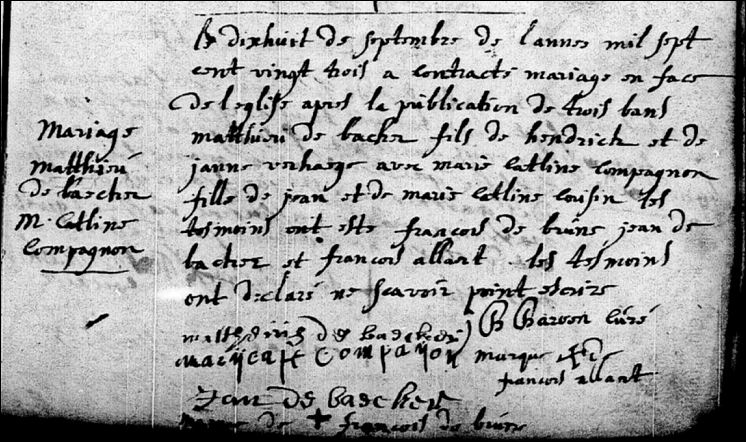 Mariage
matthieu
de baecher
M. Catline
Compagnon
Le dixhuit de septembre de l annes mil sept
cent vingt trois a contracté mariage en face
de l eglise apres la publication de trois bans
matthieu de bacher fils de hendrick et de
janne verhaege avec marie Catline Compagnon
fille de jean et de marie Catline Cousin les
tesmoins ont este françois de bruine jean de
bacher et françois allart les tesmoins
ont declaré ne scavoir point escrire
mattheiris de baecker curé
mariicatt compaiion marque de
francois allart
Jan de baecker
de + francois de bruine